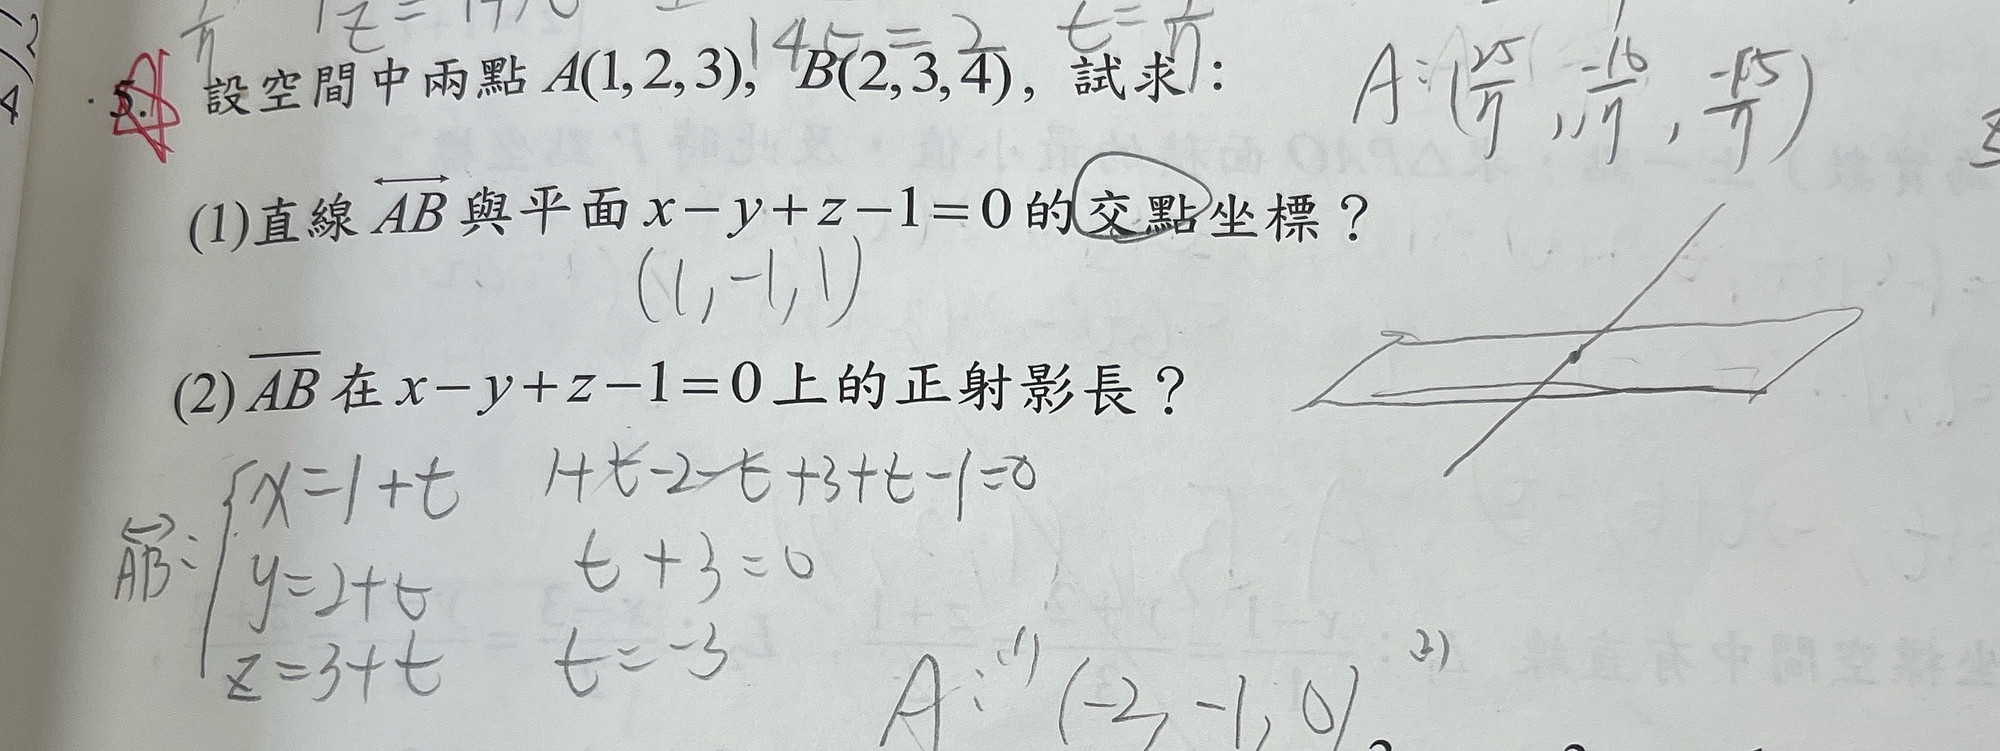 145=2 t=1/11
5. 設空間中兩點 A(1,2,3), B(2,3,4), 試求: A:(25/11, -16/11, -15/11)
(1)直線 AB 與平面 x−y+z−1=0 的交點坐標?
(1,-1,1)
(2) AB 在 x−y+z−1=0 上的正射影長?
AB: { x=1+t 1+t-2-t+3+t-1=0
y=2+t t+3=0
z=3+t t=-3
A: (1) (-2,-1,0) (2)